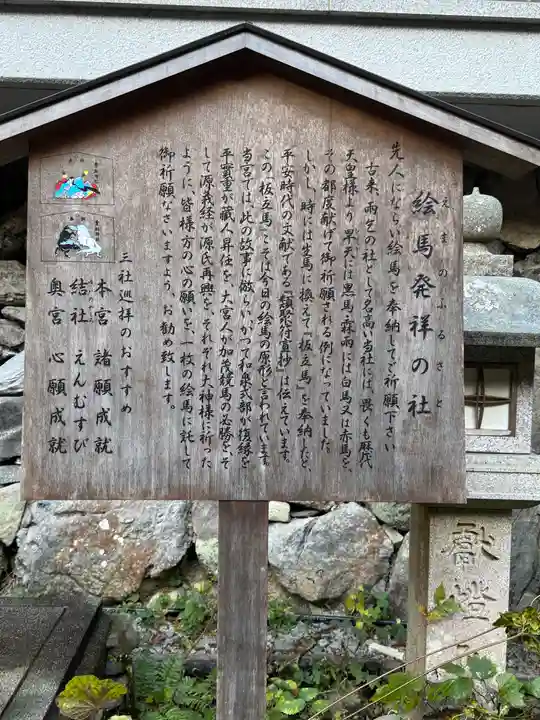 絵馬発祥の社
えまのふるさと
先人にならい絵馬を奉納してご祈願下さい
古来、雨乞の社として名高い当社には、畏くも歴代
天皇様より旱天には黒馬、霖雨には白馬又は赤馬を、
その都度献げて御祈願される例になっていました。
しかし、時には生馬に換えて「板立馬」を奉納したと、
平安時代の文献である「類聚符宣抄」は伝えています。
この「板立馬」こそは今日の絵馬の原形と言われています。
当宮では、此の故事に倣らいかつて和泉式部が復縁を
平實重が蔵人昇任を、大宮人が加茂競馬の必勝を、そ
して源義経が源氏再興を、それぞれ大神様に祈った
ように、皆様方の心の願いを、一枚の絵馬に託して
御祈願なさいますよう、お勧め致します。
三社巡拝のおすすめ
本宮 諸願成就
結社 えんむすび
奥宮 心願成就
献燈